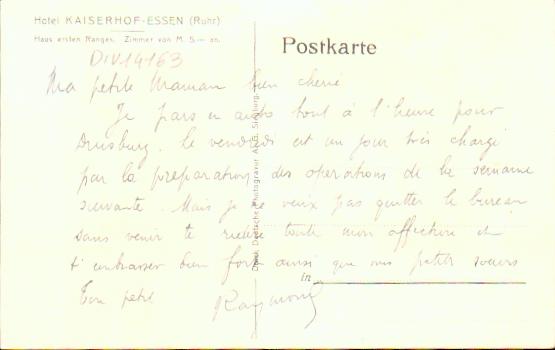 Hotel KAISERHOF-ESSEN (Ruhr)
Haus ersten Ranges. Zimmer von M. 5.— an.
DIV14163
Postkarte
Ma petite Maman bien chérie
Je pars en auto tout à l'heure pour
Duisburg. Le vendredi est un jour très chargé
par la préparation des opérations de la semaine
suivante. Mais je ne veux pas quitter le bureau
sans venir te redire toute mon affection et
t'embrasser bien fort ainsi que mes petites soeurs
Ton petit Raymond
in